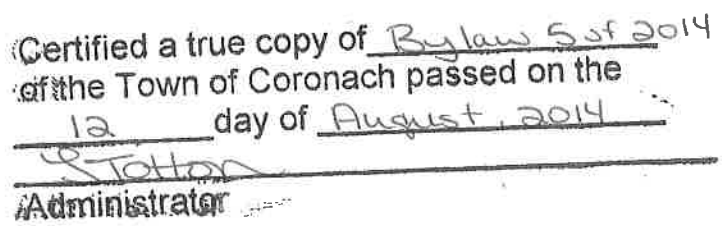 Certified a true copy of Bylaw 5 of 2014
of the Town of Coronach passed on the
12 day of August, 2014
STotton
Administrator